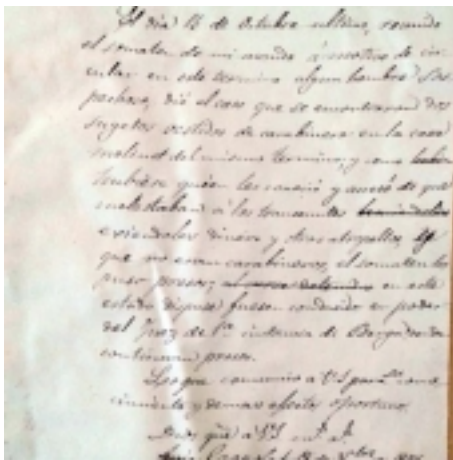 El dia 15 de Octubre ultimo, reunido
el somaten de mi mando á motivo de cir-
cular en este termino algun hombre Sos
pechoso, dió el caso que se encontraron dos
sugetos vestidos de carabinero en la casa
molino del mismo termino, y como hubi
tubiera quien les conoció y avisó de que
molestaban á los transeuntes
exiendoles dinero y otras atropellos, y
que no eran carabineros, el somaten los
puso presos; en este
estado dispuse fuesen conducidos en poder
del Juez de 1ª instancia de Berga donde
continuan presos.
Lo que comunico á VS para su cono
cimiento y demas efectos oportunos.
Dios gue á VS